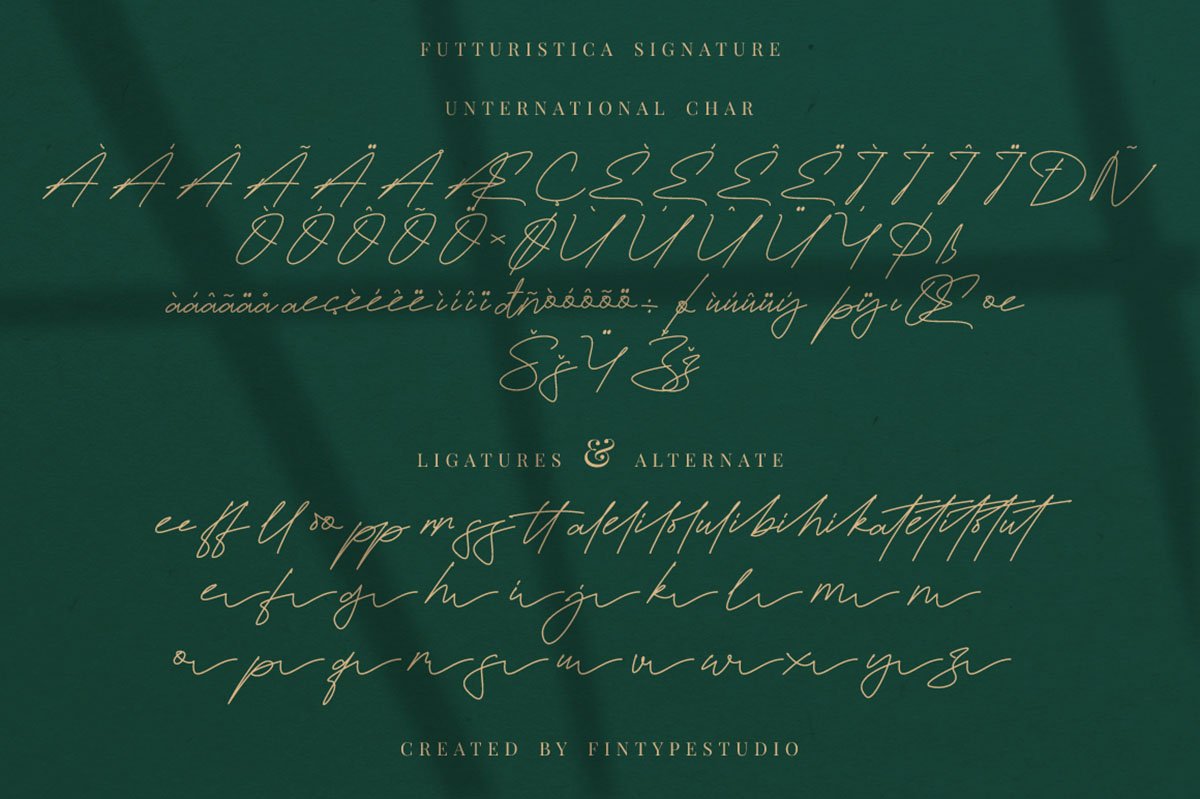 FUTTURISTICA SIGNATURE
UNTERNATIONAL CHAR
ÀÁÂÃÄÅÆÇÈÉÊËÌÍÎÏÐÑ
ÒÓÔÕÖ×ØÙÚÛÜÝÞß
àáâãäåæçèéêëìíîïðñòóôõö÷øùúûüýþÿıŒœ
ŠšŸŽž
LIGATURES & ALTERNATE
ee ff ll oo pp rr ss tt al el il ol ul ib ih ik at et it ot ut
e f g h i j k l m n
o p q r s u v w x y z
CREATED BY FINTYPESTUDIO